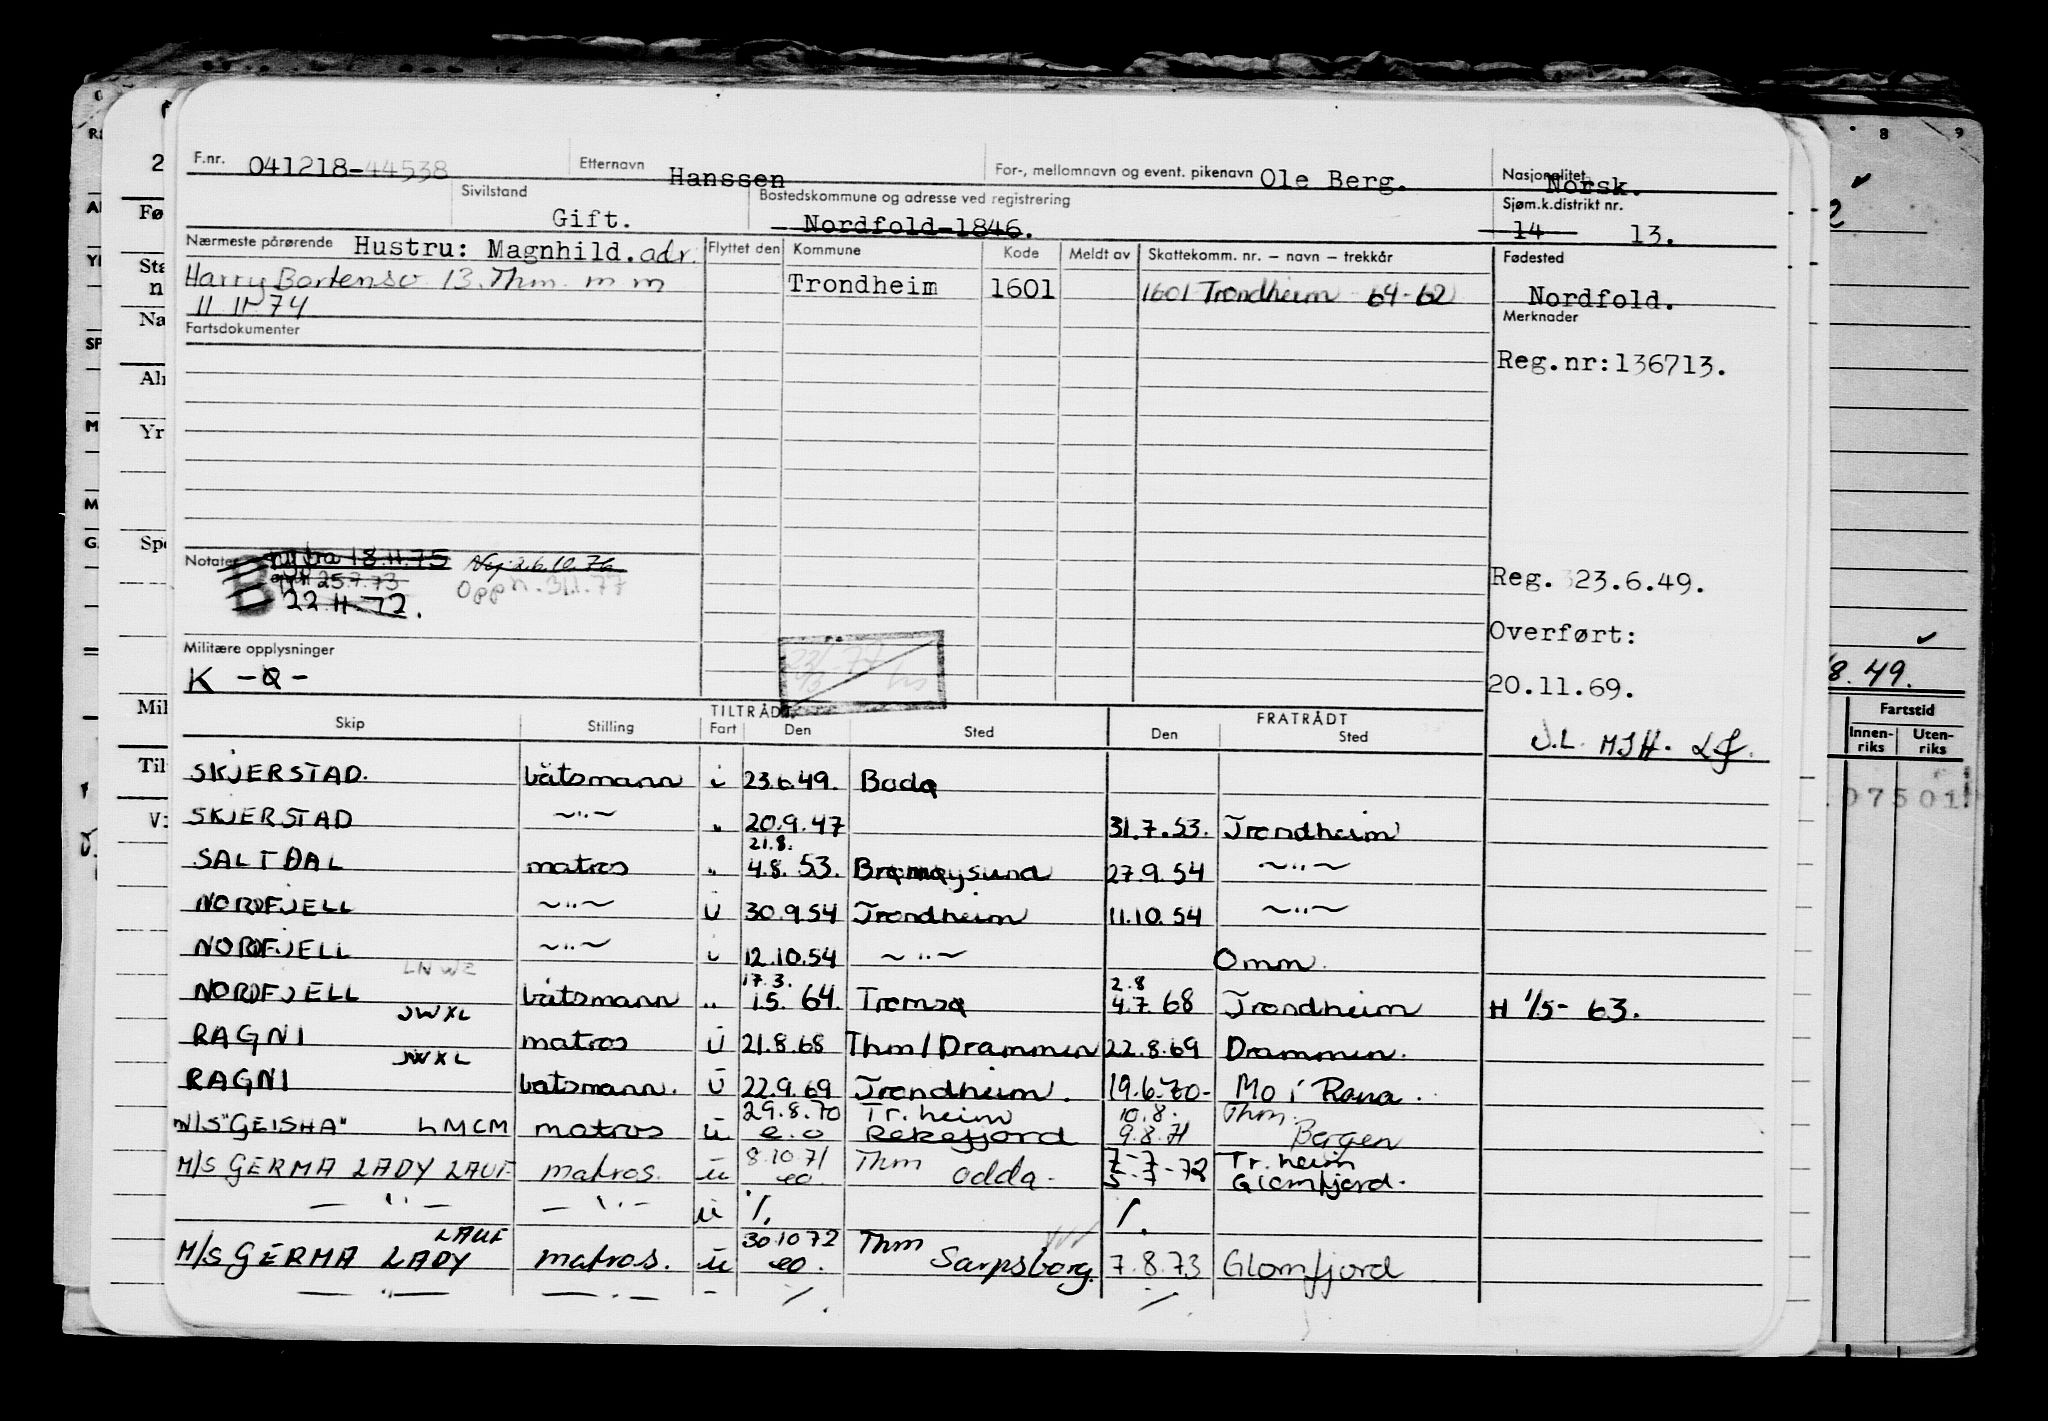 F.nr. 041218-44538 Etternavn Hanssen For-, mellomnavn og event. pikenavn Ole Berg. Nasjonalitet Norsk.
Sivilstand Gift. Bostedskommune og adresse ved registrering Nordfold-1846. Sjøm.k.distrikt nr. 14 13.
Nærmeste pårørende Hustru: Magnhild. adr. Flyttet den Kommune Kode Meldt av Skattekomm. nr. – navn – trekkår Fødested
Harry Bortensv 13. Thm. m m Trondheim 1601 1601 Trondheim 64-62 Nordfold.
11 11-74
Fartsdokumenter Merknader
Reg.nr:136713.
Notater 18.11.75 Ny 26.10.76
25.7.73 Opph. 31.1.77
B 22.11.72.
Reg. 23.6.49.
Overført:
Militære opplysninger
K -Q-
20.11.69.
TILTRÅDT FRATRÅDT
Skip Stilling Fart Den Sted Den Sted
J.L. MJH.
SKJERSTAD. båtsmann i 23.6.49. Bodø
SKJERSTAD ~"~ " 20.9.47 31.7.53. Trondheim
21.8.
SALTDAL matros " 4.8. 53. Brønnøysund 27.9.54 ~"~
NORDFJELL ~"~ U 30.9.54 Trondheim 11.10.54 ~"~
NORDFJELL ~"~ i 12.10.54 ~"~ Omm.
LNWE 17.3. 2.8
NORDFJELL båtsmann " 1.5. 64. Tromsø 4.7.68 Trondheim H 1/5- 63.
JWXL
RAGNI matros U 21.8.68 Thm/Drammen 22.8.69 Drammen.
JWXL
RAGNI båtsmann. U 22.9.69 Trondheim. 19.6.70- Mo i Rana.
29.8.70 Tr.heim 10.8. Thm.
M/S "GEISHA" LMCM matros u e.o Rekefjord 9.8.71 Bergen
8.10.71 Thm 7-7- Tr.heim
M/S GERMA LADY LAUF matros. u eo. Odda. 5-7-72 Glomfjord.
— " — — " — u %. %.
LAUF 30.10.72 Thm
M/S GERMA LADY matros. u eo. Sarpsborg. 7.8.73 Glomfjord
— " — — " — - %. %
8 9
8.49.
Fartstid
Innen-riks Uten-riks
07501